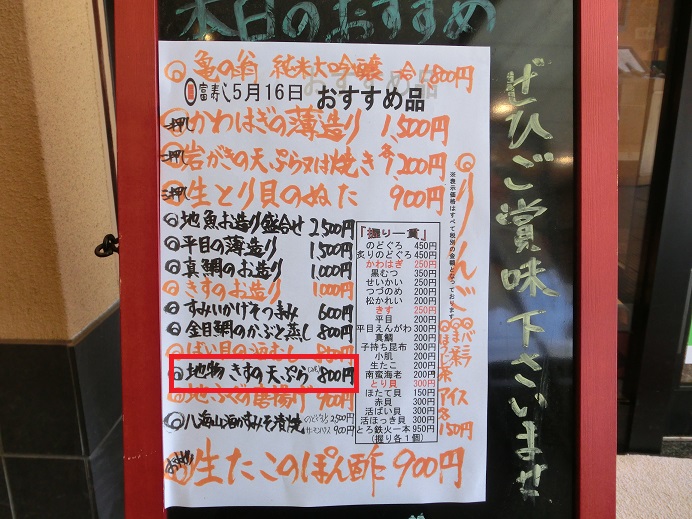 本日のおすすめ
亀の翁 純米大吟醸 一合1,800円
富寿し5月16日 おすすめ品
一押し かわはぎの薄造り 1,500円
二押し 岩がきの天ぷら又は焼き 各1,200円
三押し 生とり貝のぬた 900円
地魚お造り盛合せ 2,500円
平目の薄造り 1,500円
真鯛のお造り 1,000円
きすのお造り 1,000円
すみいかげその刺み 600円
金目鯛のかぶと蒸し 800円
ばい貝の酒むし 850円
地物きすの天ぷら 800円
地ふぐの唐揚げ 900円
八海山海がみそ漬焼
のどぐろ 2,500円
サーモンハラス 900円
おすすめ 生たこのぽん酢 900円
「握り一貫」
のどぐろ 450円
炙りのどぐろ 450円
かわはぎ 250円
黒むつ 350円
せいかい 250円
つづのめ 200円
松かれい 200円
きす 250円
平目 200円
平目えんがわ 300円
真鯛 200円
子持ち昆布 300円
小肌 200円
生たこ 200円
南蛮海老 200円
とり貝 300円
ほたて貝 150円
赤貝 300円
活ばい貝 300円
活ほっき貝 300円
とろ鉄火一本 950円
(握り各1個)
※表示価格はすべて税別の金額となっております
りんご
バニラ
ほうじ茶
アイス
各150円
ぜひご賞味下さいませ